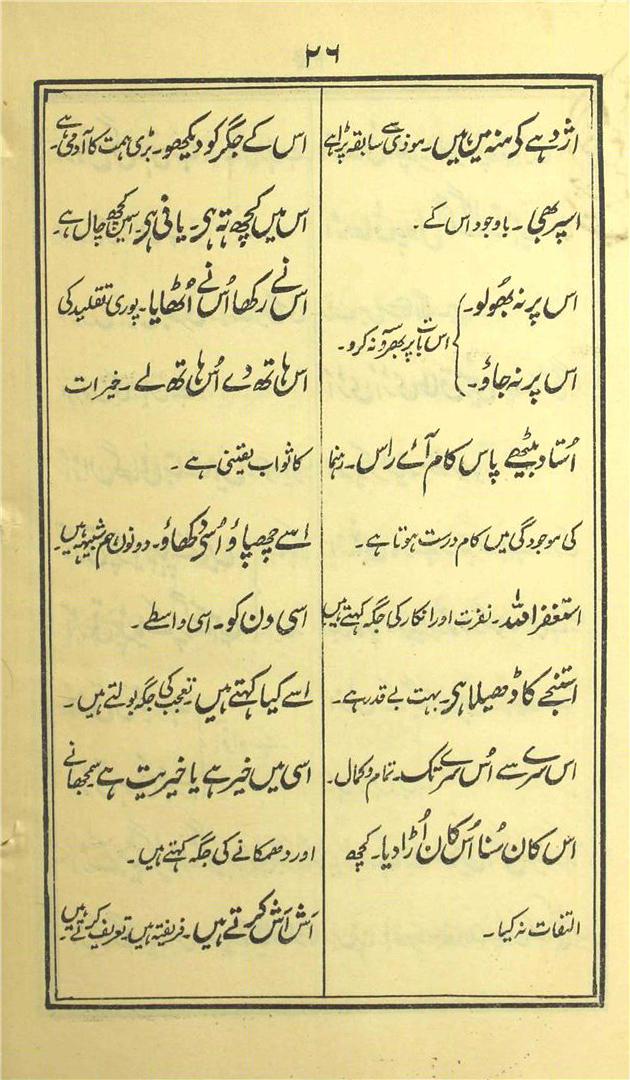 ۲۶
اژدہے کے منہ میں ہیں۔ موذی سے سابقہ پڑا ہے
اسپر بھی۔ باوجود اس کے۔
اس پر نہ بھولو۔
اس پر نہ جاؤ۔
اس بات پر بھروسہ نہ کرو۔
اُستاد بیٹھے پاس کام آئے راس۔ رہنما
کی موجودگی میں کام درست ہوتا ہے۔
استغفراللہ۔ نفرت اور انکار کی جگہ کہتے ہیں
استنجے کا ڈھیلا ہی۔ بہت بے قدر ہے۔
اس سرے سے اُس سرے تک۔ تمام و کمال۔
اس کان سُنا اُس کان اُڑا دیا۔ کچھ
التفات نہ کیا۔
اس کے جگر کو دیکھو۔ بڑی ہمت کا آدمی ہے۔
اس میں کچھ تہ ہی۔ یا فی ہی۔ اسمین کچھ چال ہے۔
اس نے رکھا اُس نے اُٹھایا۔ پوری تقلید کی
اس ہاتھ دے اُس ہاتھ لے۔ خیرات
کا ثواب یقینی ہے۔
اسے چھپاؤ اُسی دکھاؤ۔ دونون ہم شبیہ ہیں۔
اسی دن کو۔ اسی واسطے۔
اسے کیا کہتے ہیں۔ تعجب کی جگہ بولتے ہیں۔
اسی میں خیر ہے یا خیریت ہے سمجھانے
اور دھمکانے کی جگہ کہتے ہیں۔
اَش اَش کرتے ہیں۔ فریفتہ ہیں۔ تعریف کرتے ہیں۔